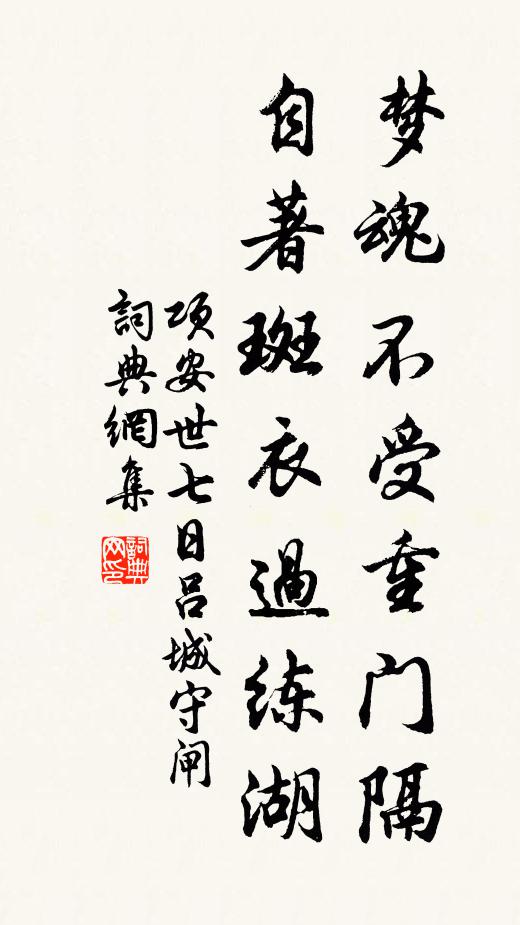 梦魂不受重门隔
自著斑衣過练湖
项安世七日吕城守闸
詞典網集
詞典网印